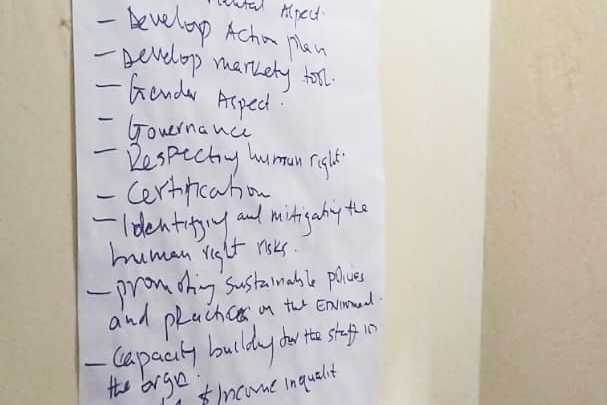 Aspect.
- Develop Action plan
- Develop markety tool.
- Gender Aspect.
- Governance
- Respecting human right.
- Certification
- Identifying and mitigating the
human right risks.
- promoting sustainable polices
and practices on the Environmet.
- Capacity buildy for the staff in
the orgn.
& Income inqualit